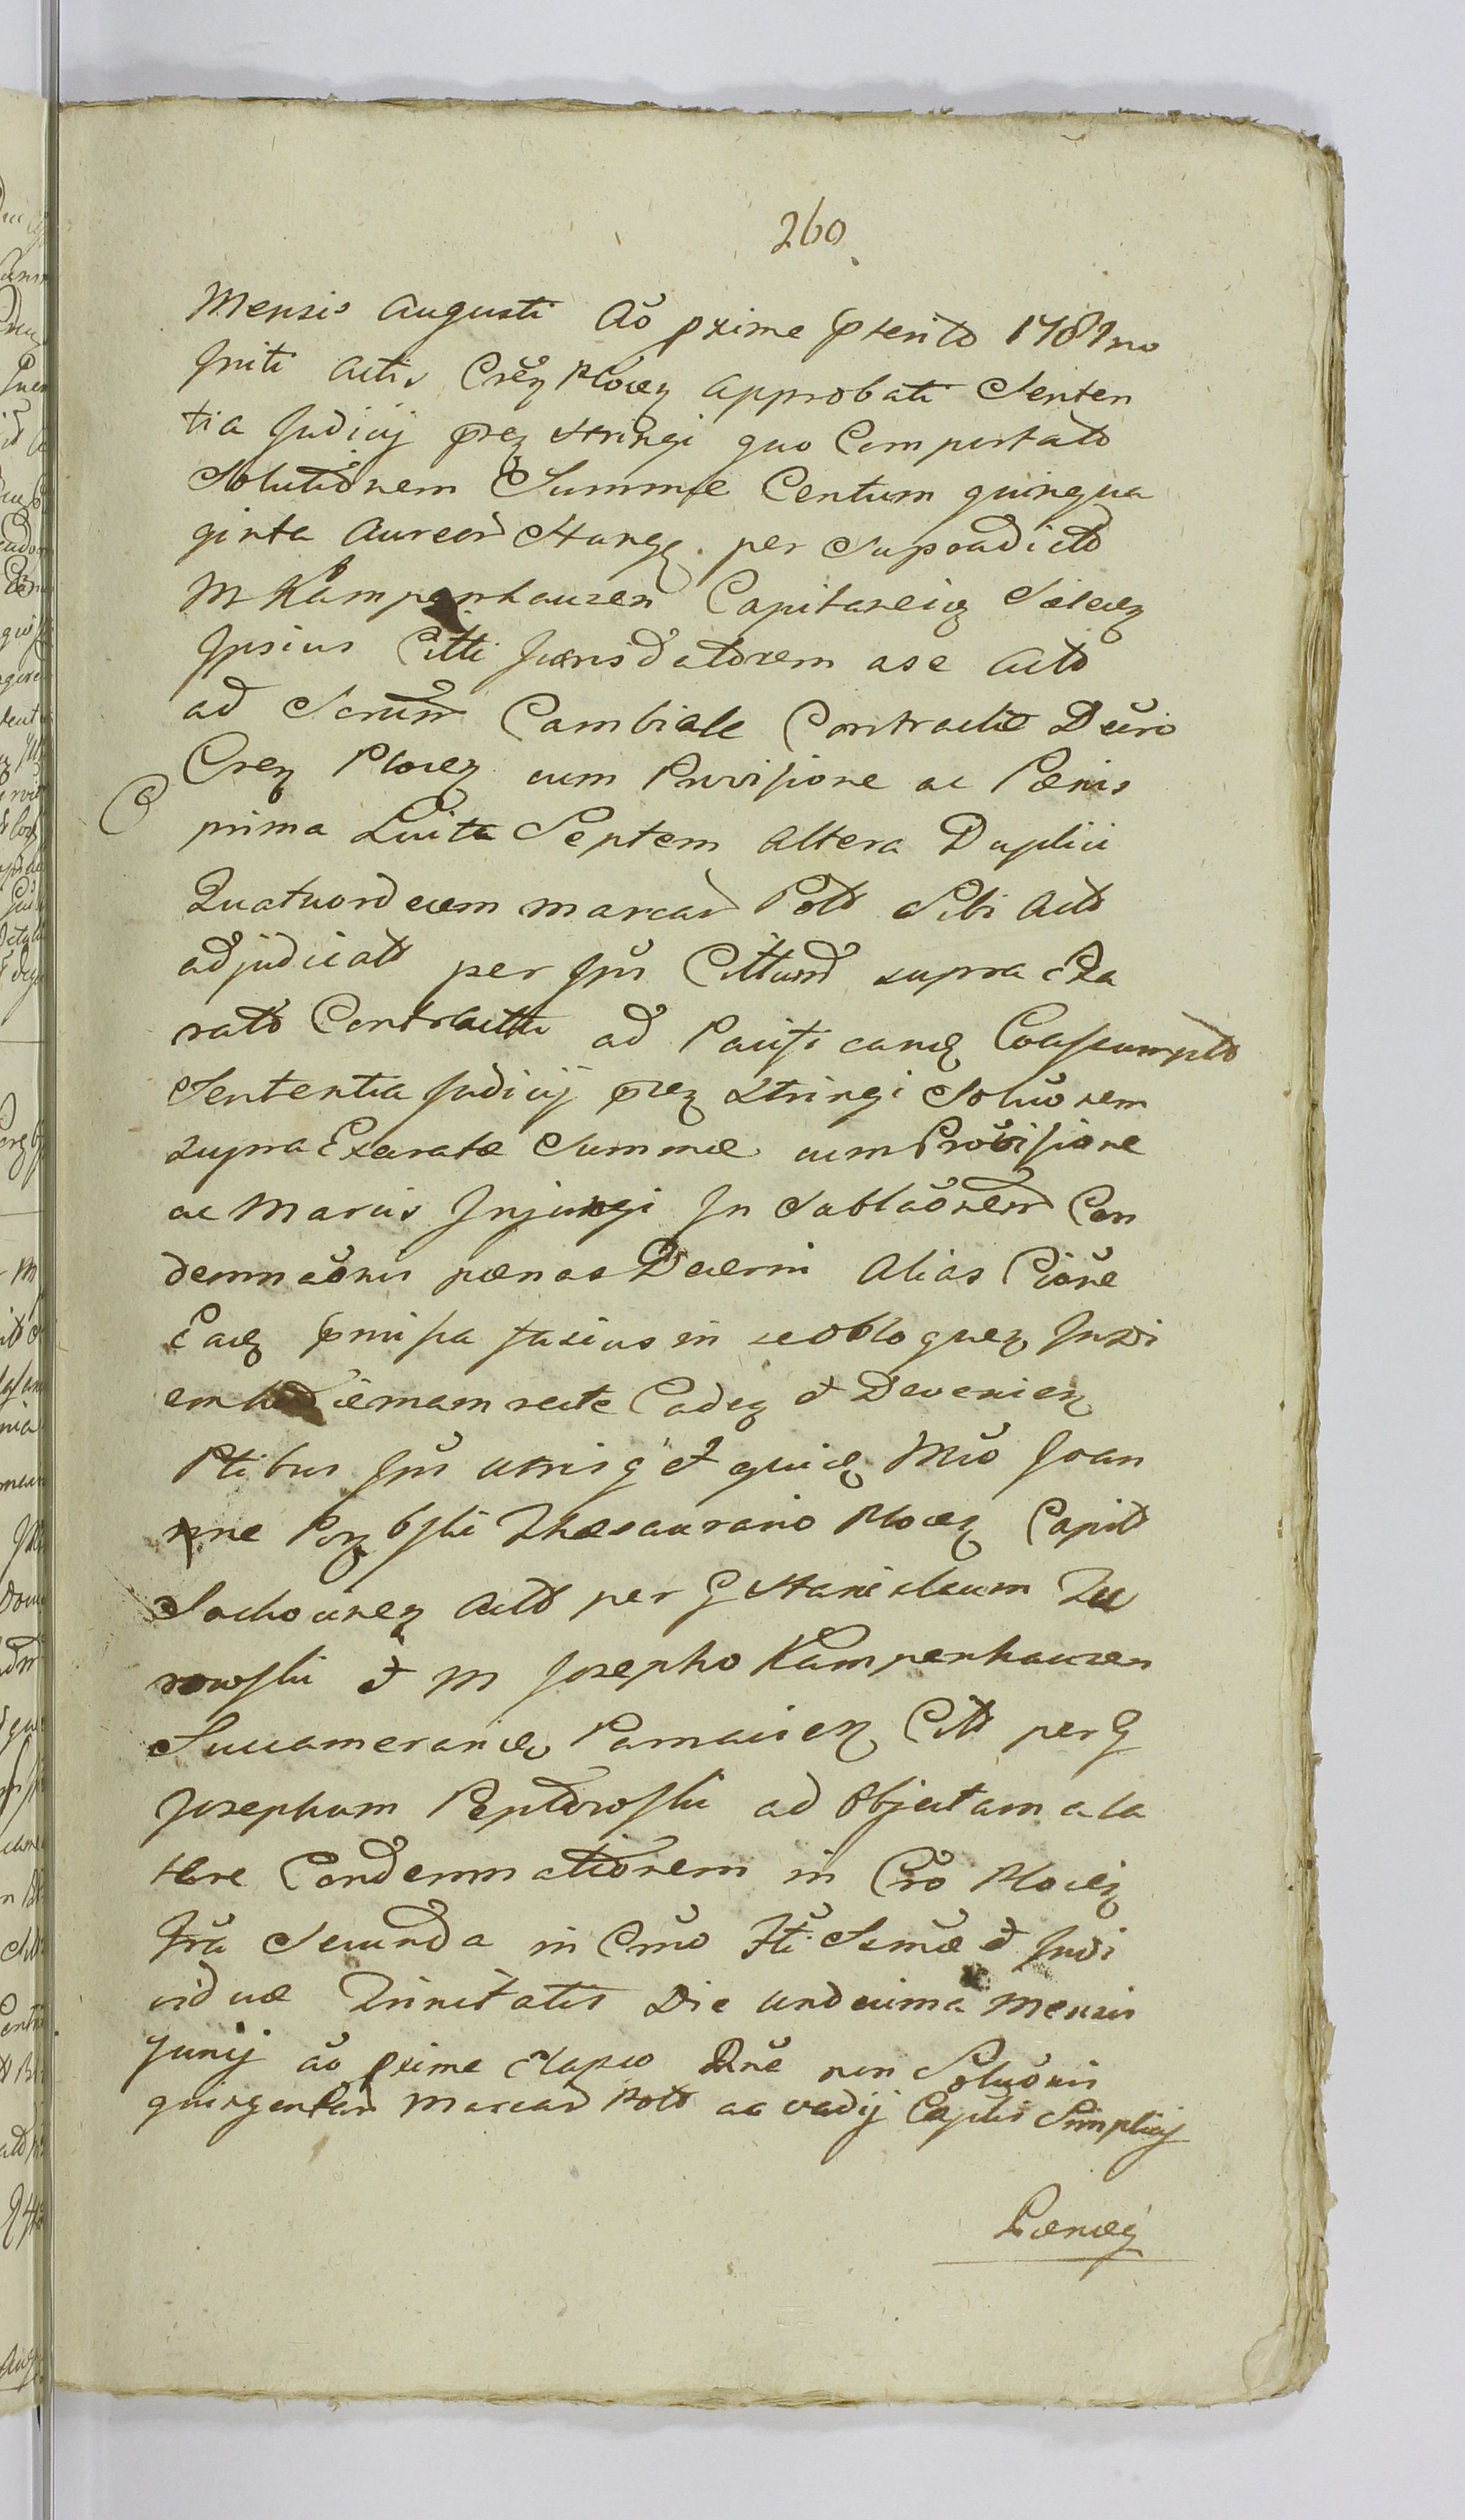 260
Mensis Augusti Aõ pxime pterito 1789no
Initi Actis Crẽz Plocez approbati Senten
tia Judicij prez stringi quo Comportato
Solutionem Summæ Centum quinqua
ginta Aureor Hung. per Supradicto
M Kampenhauzen Capitaneiez
Ipsius Citti ase Acto
ad Scrum Cambiale Contractæ
Crez Plocez cum Provisione ac Pœnis
prima Luita Septem altera Duplici
Quatuordecem marcar Polt Sibi Acto
adjudicatt per Ips Cittum supra Exa
rato Contractu ad Coassumpto
Sententia Judicij prez Stringi Soluõnem
supra Exaratæ Summæ cum Provisione
ac Marcis Injungi In Sublaõnem Con
demnaõnis pœnas Decerni Alias Ciõne
Eaez pmissa fusius in se obloquez Indi
em hodiernam recte Cadez et Devenien
Ptibus Ips utrisq et quiez Mco Joan
nne Thesaurario Plocez Capit
Sochoccnez Actt per G Stanisleum Zu
rowski et M Josepho Kampenhauzen
Succamerariez Parnaviez Citt per G
Josephum Peptowski ad Objectam a la
tere Condemnationem in Cro Plocez
Fra Secunda in Crno Fti Ssmæ et Indi
viduæ Trinitatis Die undecima Mensis
Junij ão pxime Elapso Rne non Soluõnis
quingentar Marcar Polt ac vadij Captis Simplicij
Pœnæq